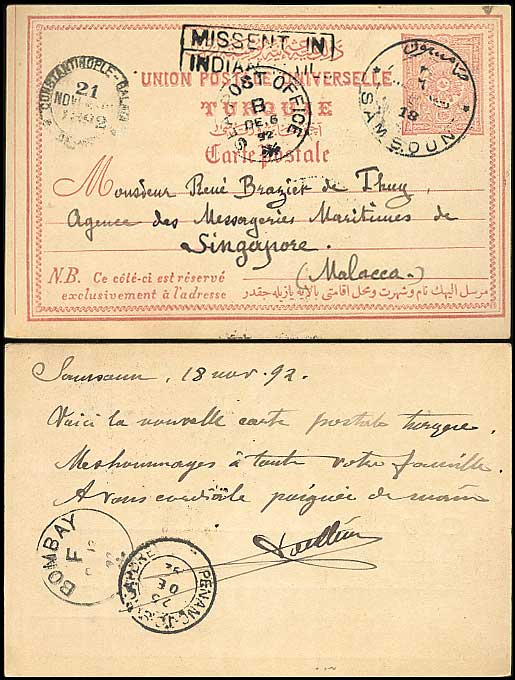 MISSENT IN
INDIA
UNION POSTALE UNIVERSELLE
TURQUIE
Carte postale
CONSTANTINOPLE-GALATA
21
NOV
POST OFFICE
B
DE.6
92
SAMSOUN
18
Monsieur René Brazier de Thuy,
Agence des Messageries Maritimes de
Singapore.
(Malacca.)
N.B. Ce côté-ci est réservé
exclusivement à l'adresse
مرسل اليهك نام و شهرت و محل اقامتى بالايه يازيله جقدر
Samsoun, 18 nov. 92.
Voici la nouvelle carte postale turque.
Mes hommages à toute votre famille.
A vous cordiale poignée de main
BOMBAY
F
PENANG
25
DE